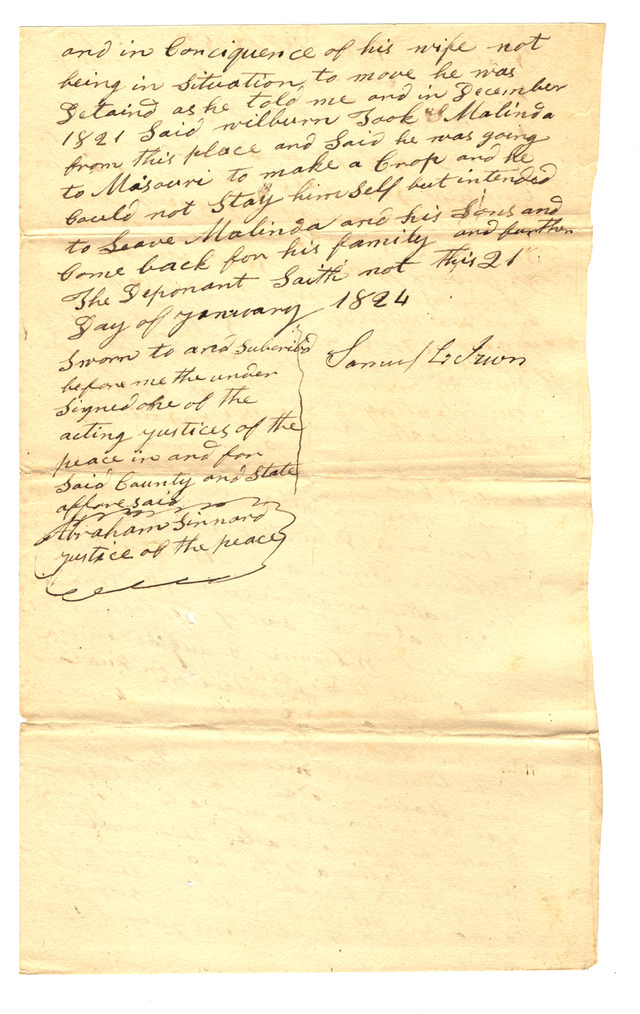 and in Conciquence of his wife not
being in Situation to move he was
Detaind as he told me and in December
1821 Said wilburn Took Malinda
from this place and Said he was going
to Masouri to make a Crop and he
Could not Stay him Self but intended
to Leave Malinda and his Sons and
Come back for his family and further
The Deponant Saith not this 21
Day of January 1824
Samuel
Sworn to and Subcribd
before me the under
Signed one of the
acting justices of the
peace in and for
Said County and State
affore Said
Abraham Sinnard
justice of the peace